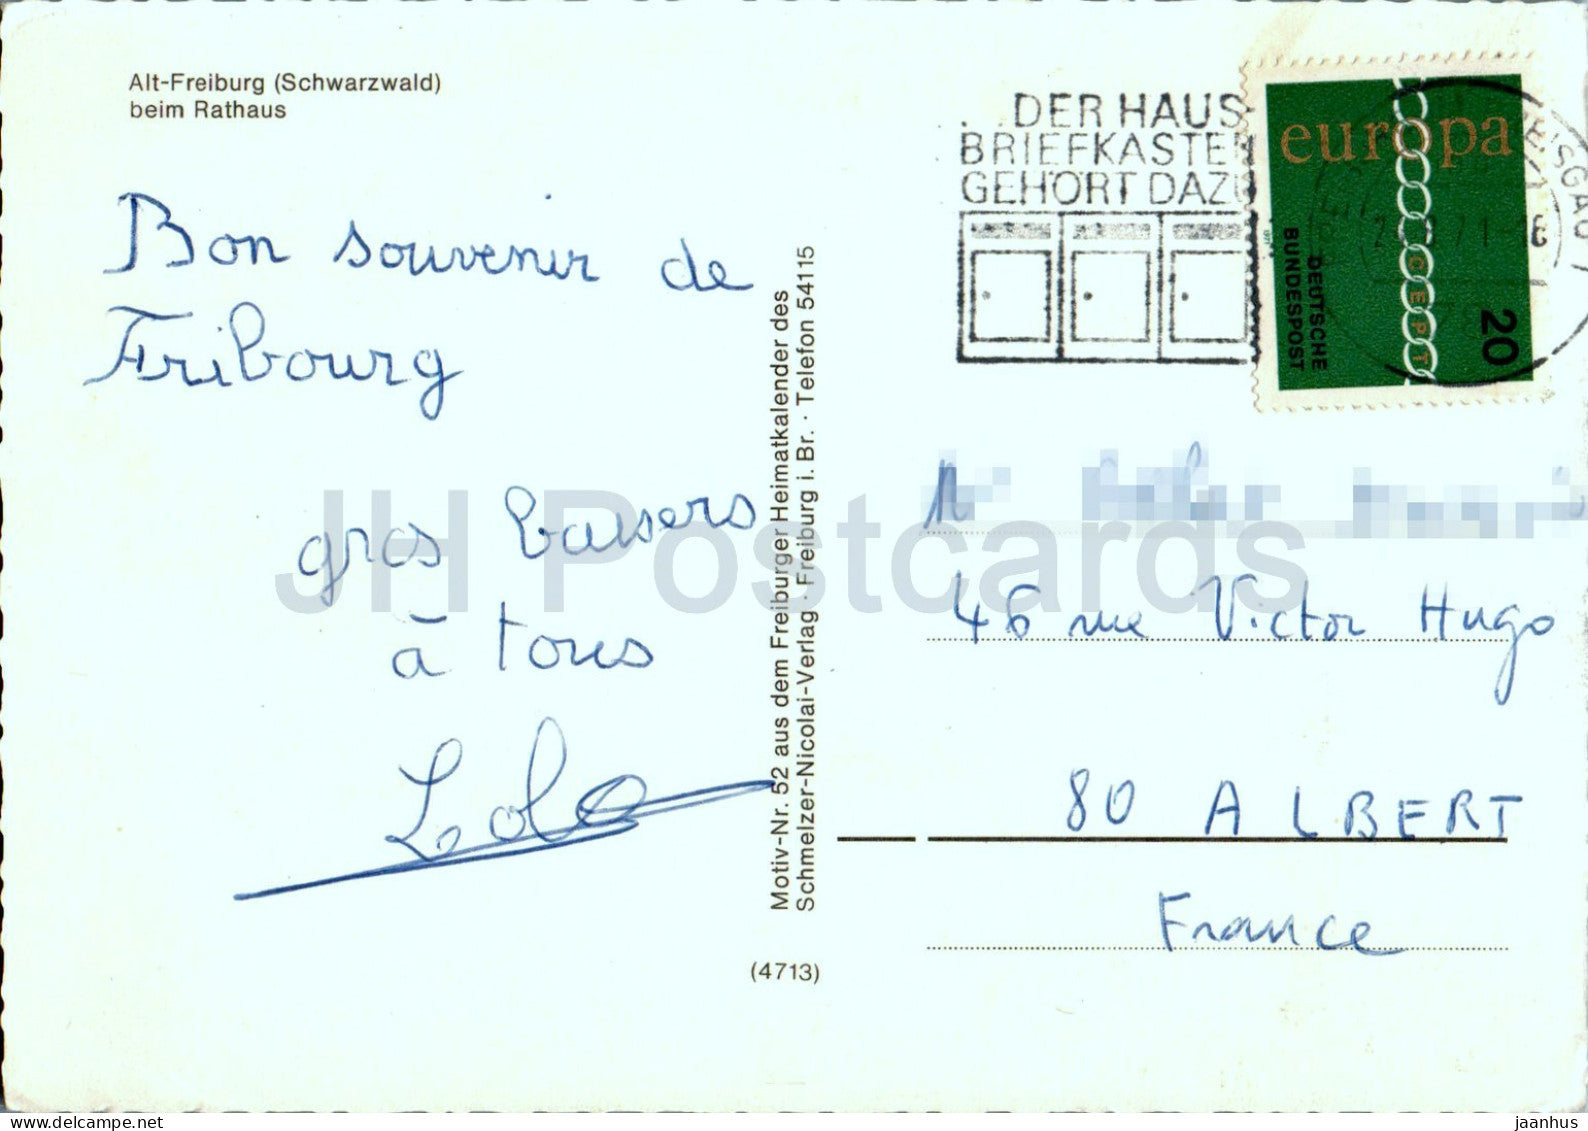 Alt-Freiburg (Schwarzwald)
beim Rathaus
Bon souvenir de
Fribourg
gros baisers
à tous
Lola
Motiv-Nr. 52 aus dem Freiburger Heimatkalender des
Schmelzer-Nicolai-Verlag · Freiburg i. Br. · Telefon 54115
(4713)
...DER HAUS
BRIEFKASTEN
GEHÖRT DAZU
europa
CEPT
DEUTSCHE
BUNDESPOST
20
46 rue Victor Hugo
80 ALBERT
France
JH Postcards
www.delcampe.net
jaanhus